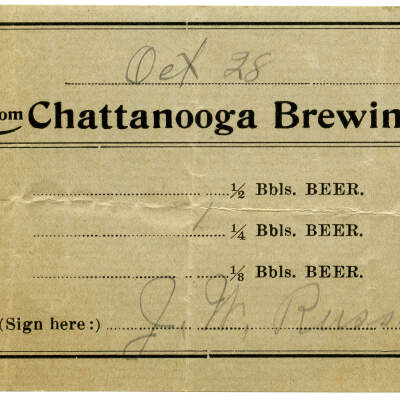 Oct 28
om Chattanooga Brewin
½ Bbls. BEER.
1 ¼ Bbls. BEER.
⅛ Bbls. BEER.
(Sign here:) J. W. Russ